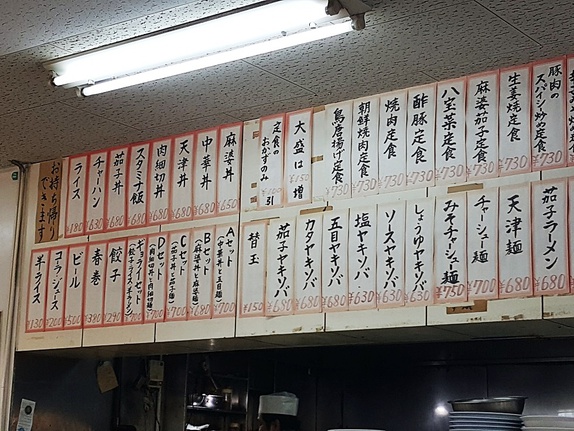 豚肉の
スパイシー炒め定食
¥730
生姜焼定食
¥730
麻婆茄子定食
¥730
八宝菜定食
¥730
酢豚定食
¥730
焼肉定食
¥730
朝鮮焼肉定食
¥730
鳥唐揚げ定食
¥730
大盛は
¥150
増
定食の
おかずのみ
引
麻婆丼
¥650
中華丼
¥680
天津丼
¥680
肉細切丼
¥680
スタミナ飯
¥680
茄子丼
¥680
チャーハン
¥630
ライス
¥180
お持ち帰り
できます
茄子ラーメン
¥680
天津麺
¥680
チャーシュー麺
¥700
みそチャーシュー麺
¥750
しょうゆヤキソバ
¥630
ソースヤキソバ
¥630
塩ヤキソバ
¥630
五目ヤキソバ
¥680
カタヤキソバ
¥680
茄子ヤキソバ
¥680
替玉
¥150
Aセット
(中華丼と五目麺)
¥700
Bセット
(麻婆丼と麻婆麺)
Cセット
(茄子丼と茄子麺)
Dセット
(肉細切丼と肉細切麺)
¥700
ギョウザセット
¥700
餃子
¥290
春巻
¥380
ビール
¥500
コーラ・ジュース
¥200
半ライス
¥130